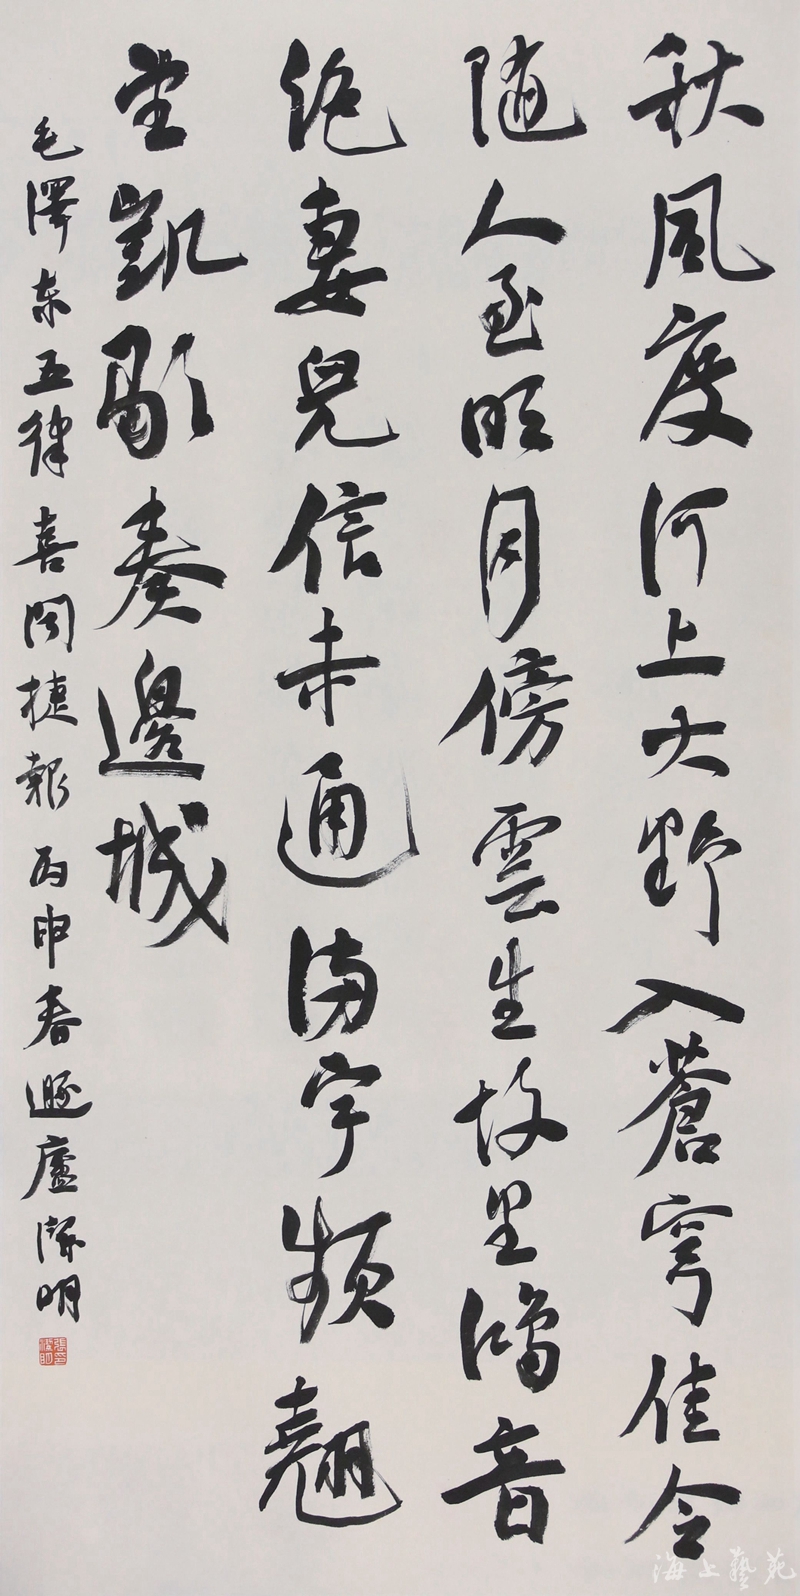 秋風度河上大野入蒼穹佳令
随人至明月傍雲生故里鴻音
絶妻兒信未通滿宇頻翹
望凱歌奏邊城
毛澤东五律喜聞捷報 丙申春遯廬明
海上藝苑